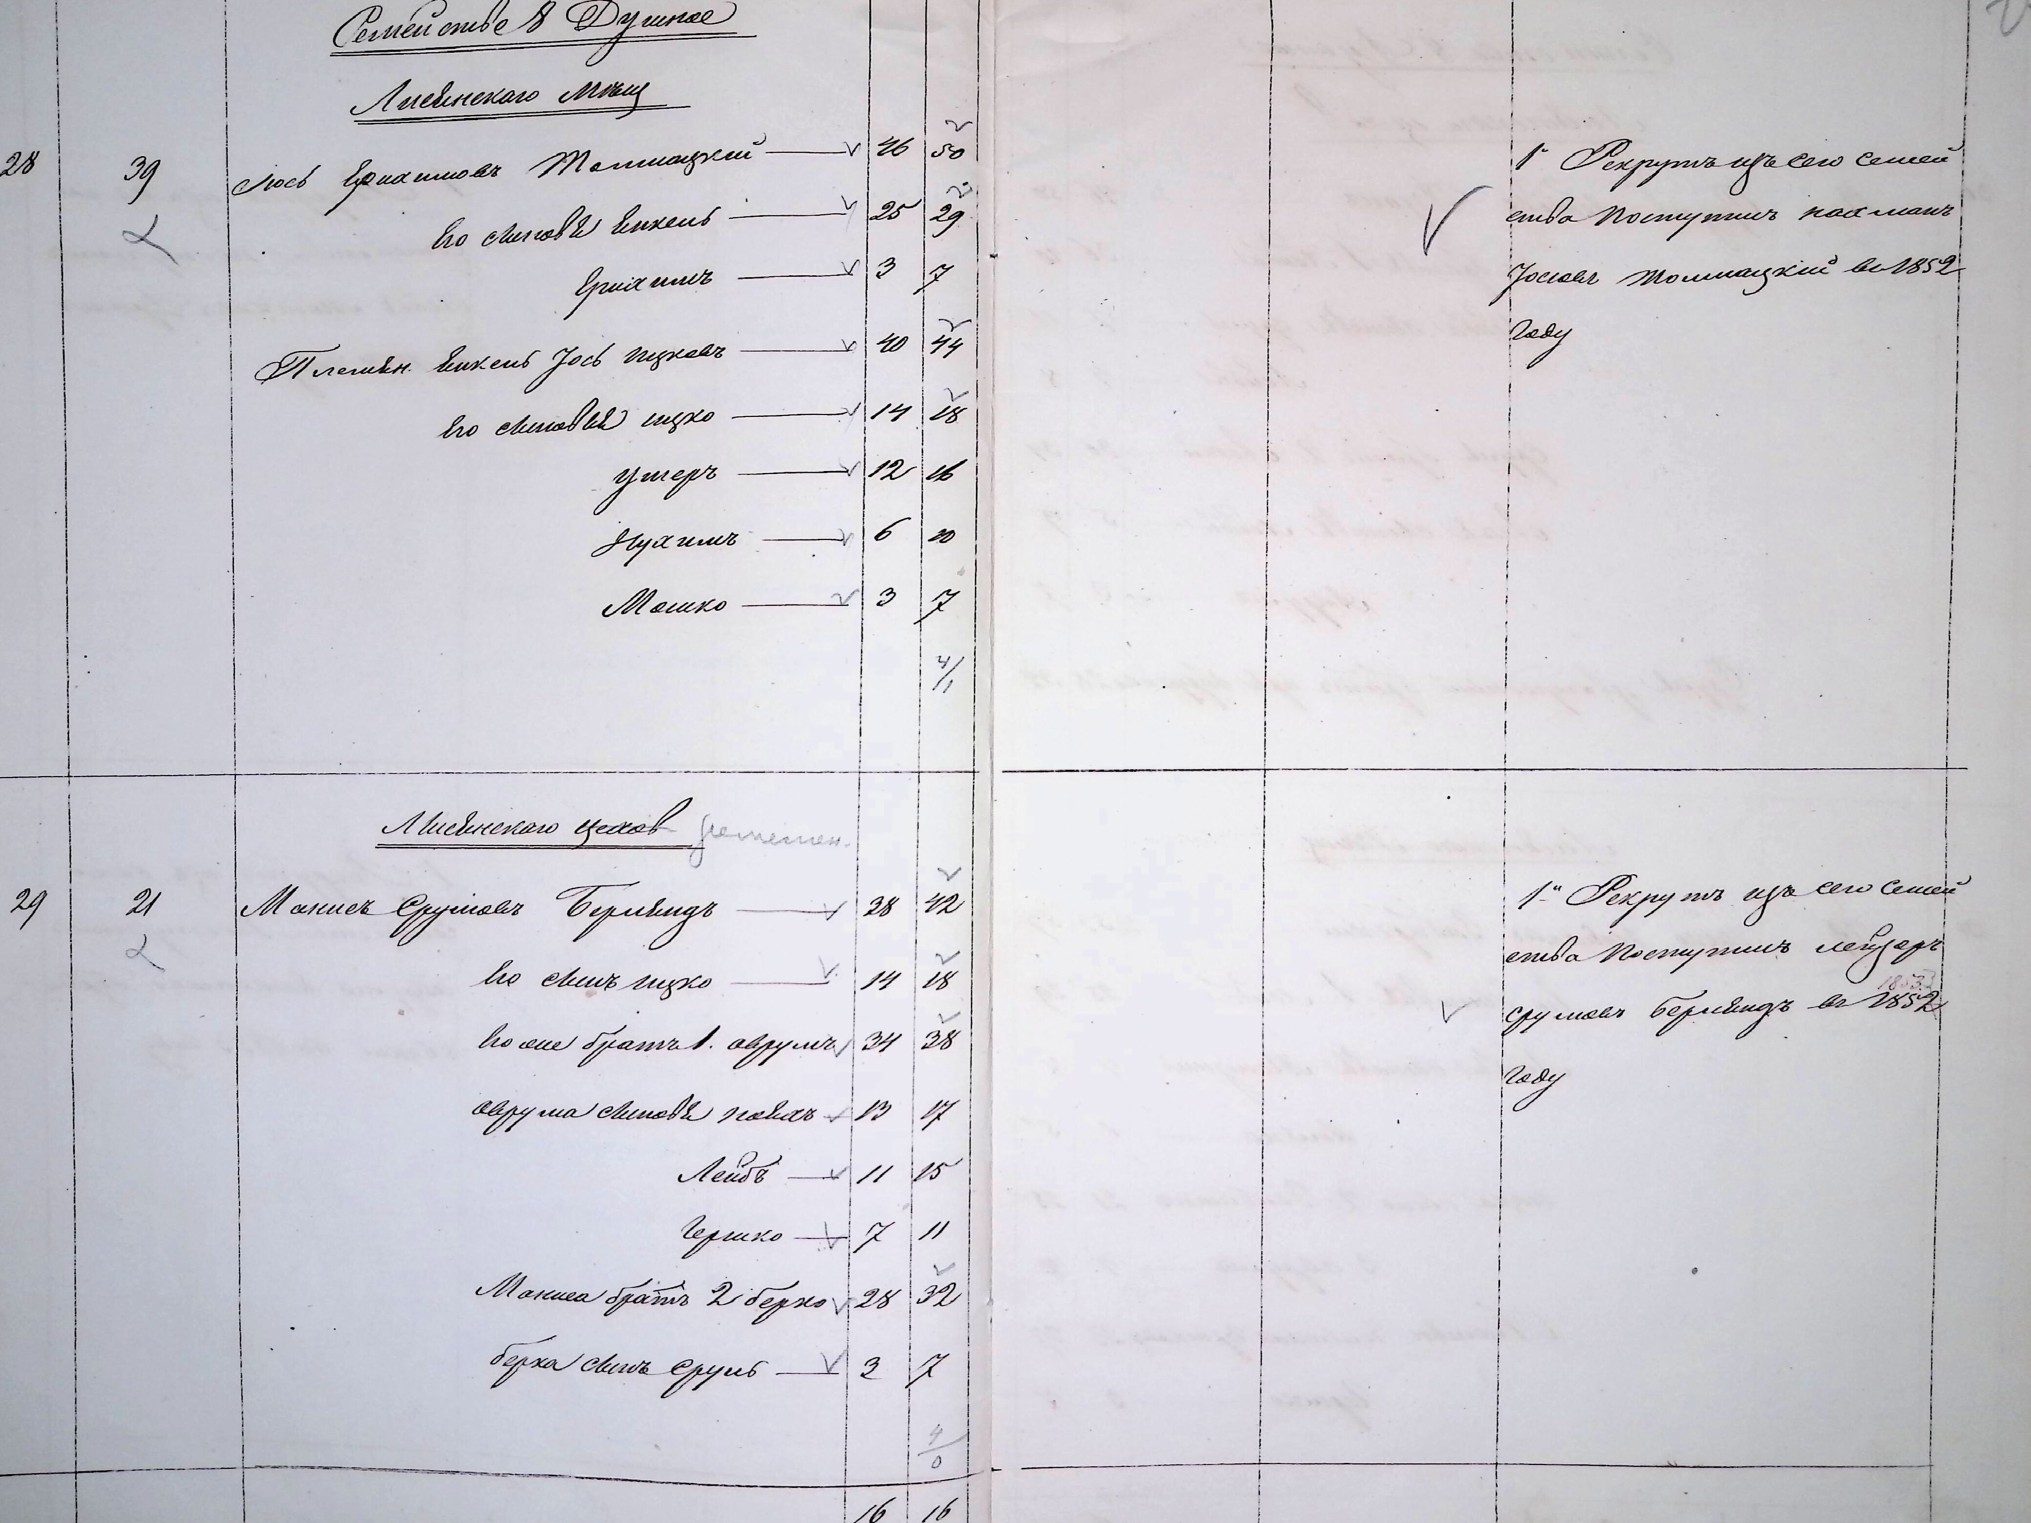 Семейство 8 Душное
Лисянскаго Мѣщ
28 39 Іось Ерихимовъ Толмацкій 46 50
Его сыновья Янкель 25 29
Ерихимъ 3 7
Племян. Янкель Іось Ицковъ 40 44
Его сыновья ицко 14 18
Ушеръ 12 16
Нухимъ 6 10
Мошко 3 7
4/1
1 Рекрутъ изъ сего семей
ства Поступилъ нахманъ
Іосіовъ Толмацкій въ 1852
Году
Лисянскаго цехов
29 21 Манисъ Срулювъ Берлядъ 38 42
Его сынъ ицко 14 18
Его же братъ 1. аврумъ 34 38
аврума сыновья 13 17
Лейбъ 11 15
Гершко 7 11
Маниса братъ 2 берко 28 32
берка сынъ сруль 3 7
4/0
1й Рекрутъ изъ сего семей
ства Поступилъ лейзоръ
1853
срулювъ Берлядъ въ 1852
Году
16 16